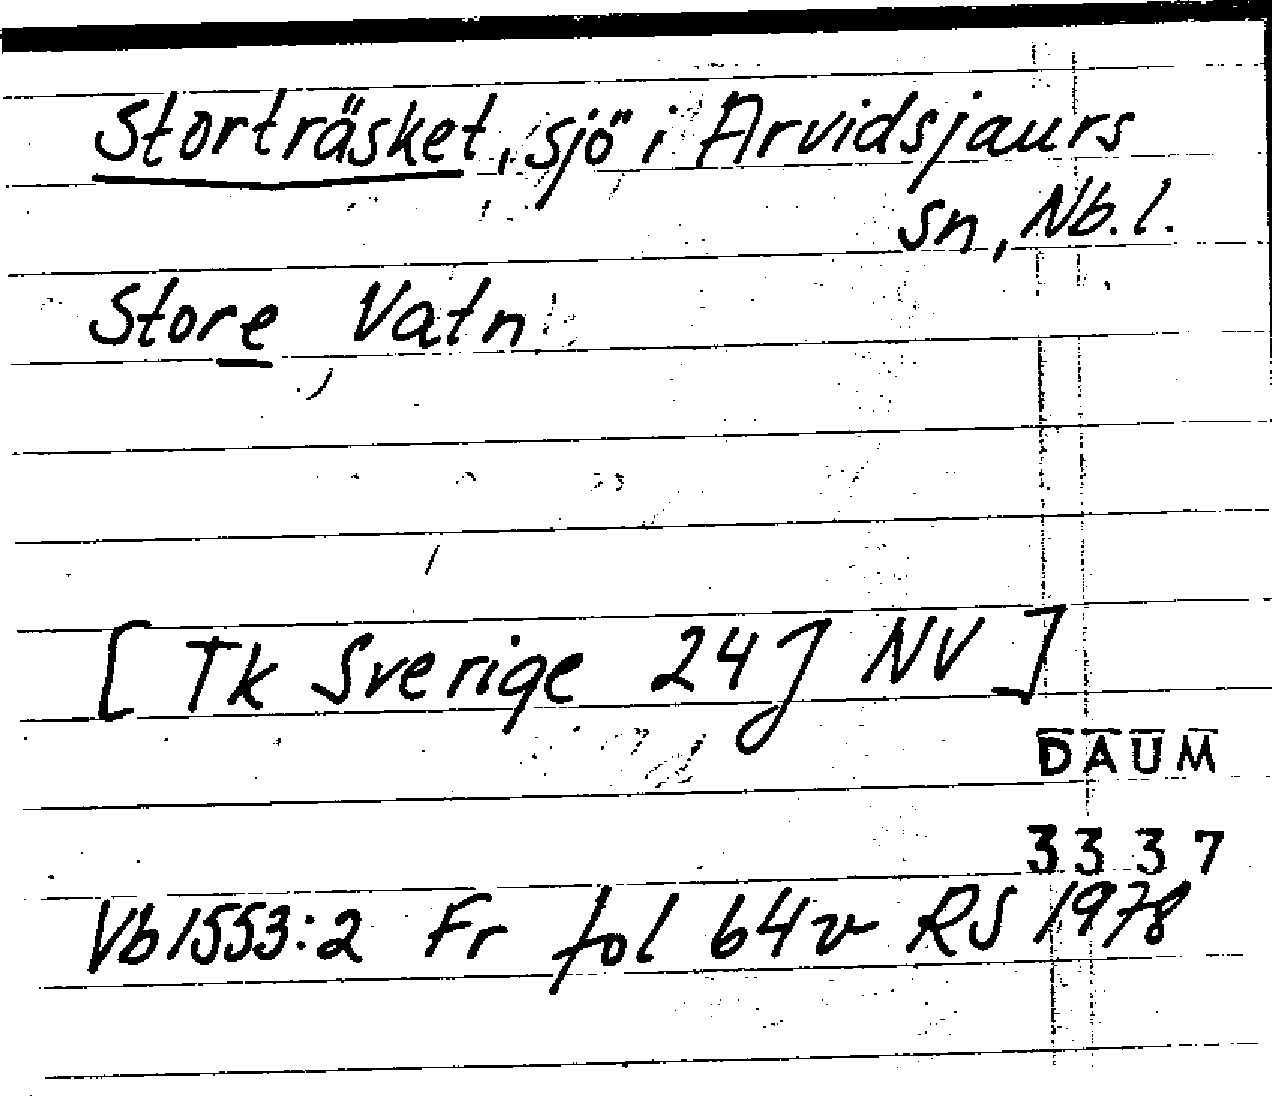 Storträsket, sjö i Arvidsjaurs
sn, Nb.l.
Store Vatn
[Tk Sverige 24J NV]
DAUM
3337
Vb 1553:2 Fr fol 64v RS 1978